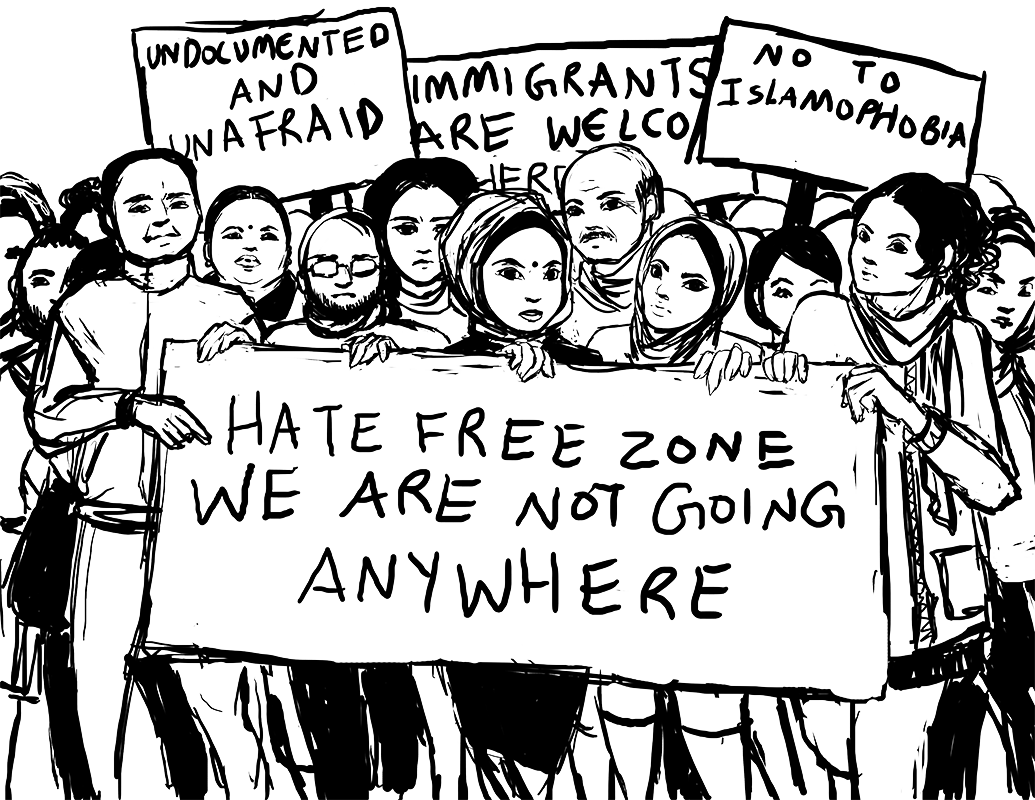 UNDOCUMENTED
AND
UNAFRAID
IMMIGRANTS
ARE WELCO
HERE
NO TO
ISLAMOPHOBIA
HATE FREE ZONE
WE ARE NOT GOING
ANYWHERE